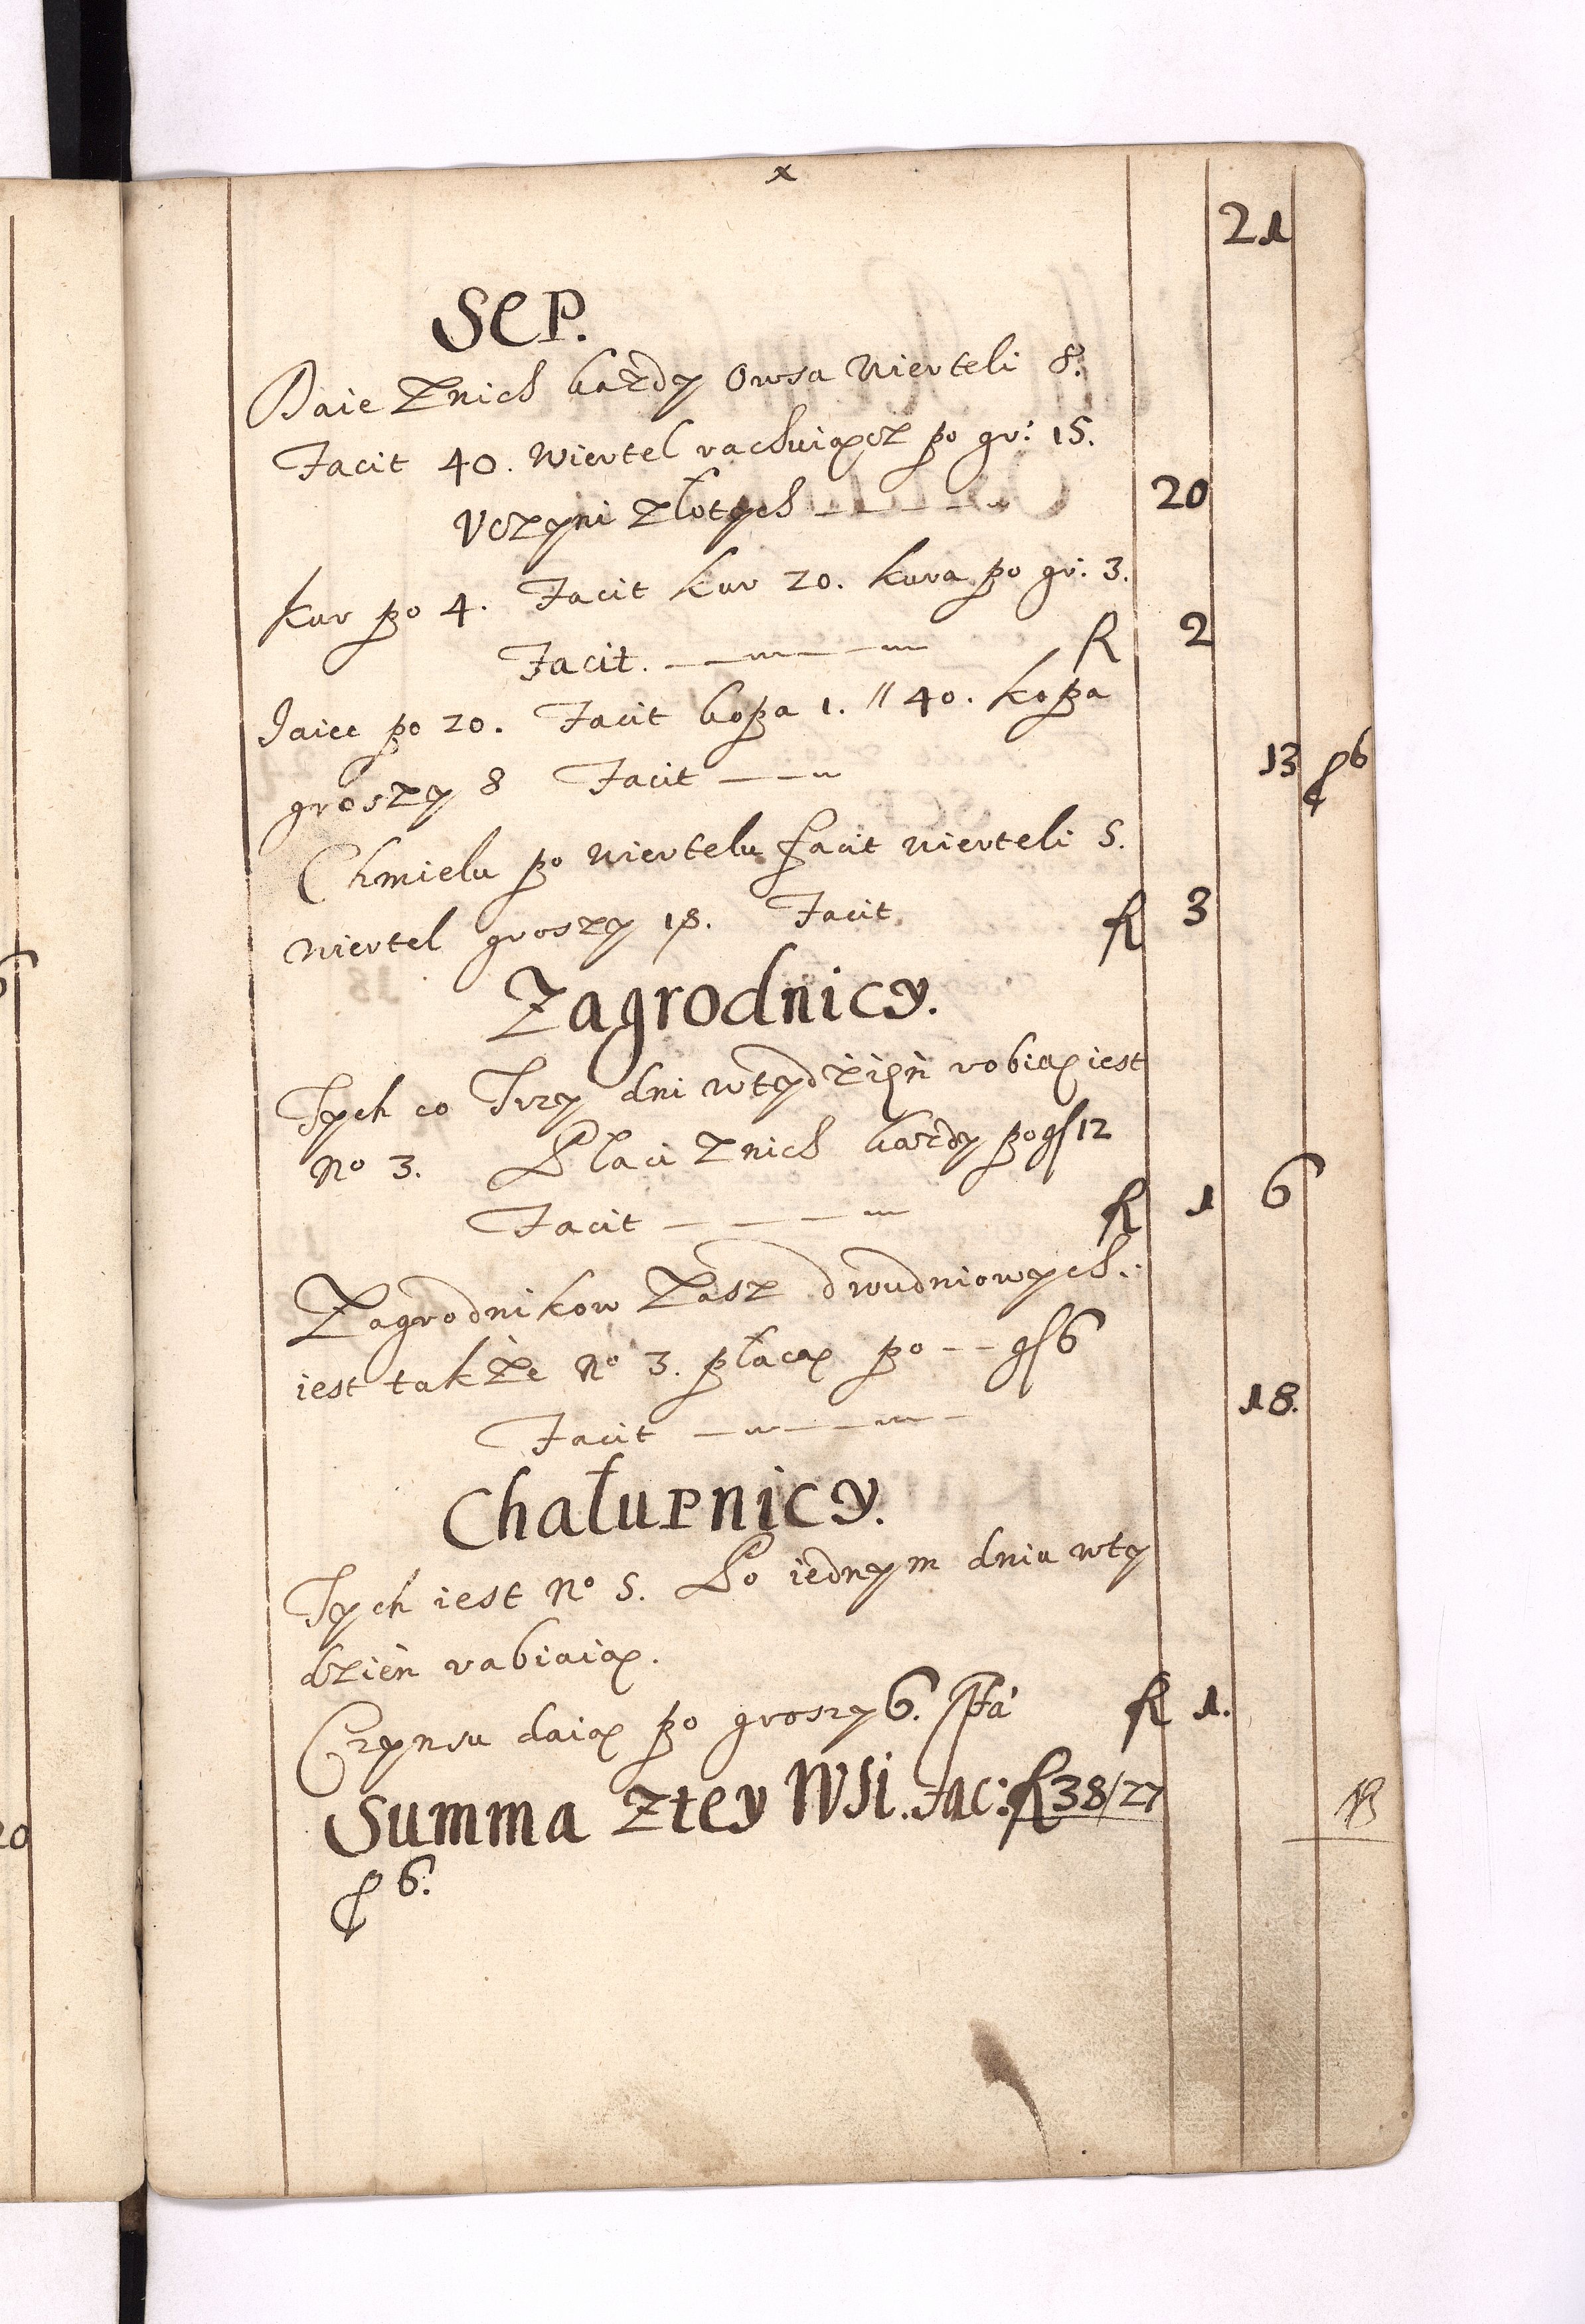 x
21
Sep.
Daie Znich każdy Owsa Wierteli 8.
Facit 40. Wiertel rachuiącz po gr: 15.
Vczyni Złotych 20
Kur po 4. Facit Kur 20. Kura po gr: 3.
Facit. fl 2
Jaiec po 20. Facit kopa 1. // 40. Kopa
groszy 8 Facit 13 ₰ 6
Chmielu po wiertelu facit wierteli 5.
wiertel groszy 18. Facit fl 3
Zagrodnicy.
Tych co Trzy dni wtydzięń robią iest
No 3. Płaci Znich każdy po gl 12
Facit fl 1 6
Zagrodnikow Zasz dwudniowych.
iest takZe No 3. płacą po gl 6
Facit 18.
Chałupnicy.
Tych iest No 5. Po iednym dniu wty
dzień rabiaią.
Czynsu daią po groszy 6. fa fl 1.
Summa Ztey Wsi. Fac: fl 38/27
₰ 6.